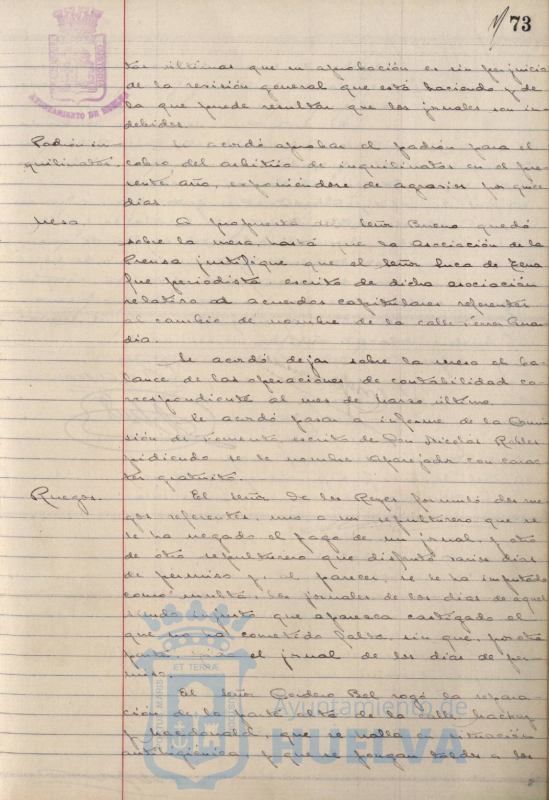 73
AYUNTAMIENTO DE HUELVA
tas últimas que su aprobación es sin perjuicio
de la revisión general que está haciendo y de
la que puede resultar que los jornales son in-
debidos.
Padrón in-
quilinatos.
Se acordó aprobar el padrón para el
cobro del arbitrio de inquilinatos en el pre-
sente año, exponiéndose de agravios por quince
días
Mesa
A propuesta del Señor Bueno quedó
sobre la mesa, hasta que la Asociación de la
Prensa justifique que el Señor Luca de Tena
fue periodista, escrito de dicha asociación
relativo a acuerdos capitulares referentes
al cambio de nombre de la calle
dia.
Se acordó dejar sobre la mesa el ba-
lance de las operaciones de contabilidad co-
rrespondiente al mes de Marzo último.
Se acordó pasar a informe de la Comi-
sión de Fomento escrito de Don Nicolás Robles
pidiendo se le nombre aparejador con carac-
ter gratuito.
Ruegos.
El Señor de los Reyes formuló dos rue-
gos referentes, uno a un sepulturero que se
le ha negado el pago de un jornal, y otro
de otro sepulturero que disfrutó varios días
de permiso y, al parecer, se le ha imputado
como multa los jornales de los días de aquel
siendo injusto que aparezca castigado el
que no ha cometido falta, sin que, por otra
parte, el jornal de los días de per-
miso.
El Señor Cordero Bel rogó la repara-
ción de la parte alta de la calle Mackay
y Macdonald, que se halla en situación
antihigiénica y que se pongan toldos a los
PORTUS MARIS
ET TERRAE
CUSTODIA
Ayuntamiento de
HUELVA